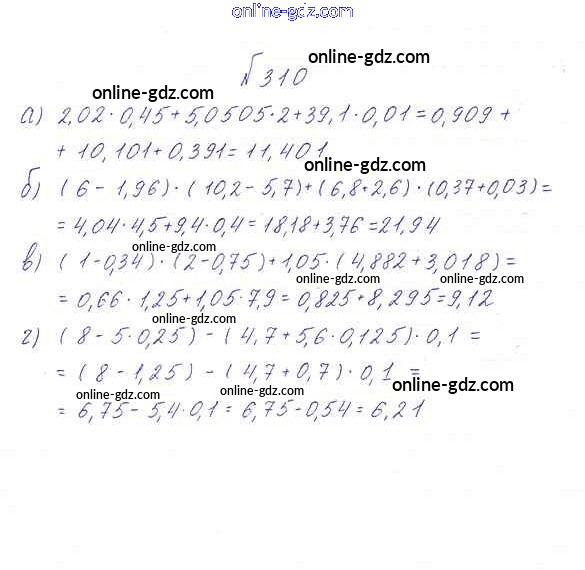 online-gdz.com
№310
online-gdz.com
online-gdz.com
а) 2,02·0,45+5,0505·2+39,1·0,01=0,909+
+10,101+0,391=11,401
online-gdz.com
б) (6-1,96)·(10,2-5,7)+(6,8+2,6)·(0,37+0,03)=
=4,04·4,5+9,4·0,4=18,18+3,76=21,94
online-gdz.com
online-gdz.com
в) (1-0,34)·(2-0,75)+1,05·(4,882+3,018)=
=0,66·1,25+1,05·7,9=0,825+8,295=9,12
online-gdz.com
online-gdz.com
г) (8-5·0,25)-(4,7+5,6·0,125)·0,1=
=(8-1,25)-(4,7+0,7)·0,1=
online-gdz.com
online-gdz.com
online-gdz.com
=6,75-5,4·0,1=6,75-0,54=6,21